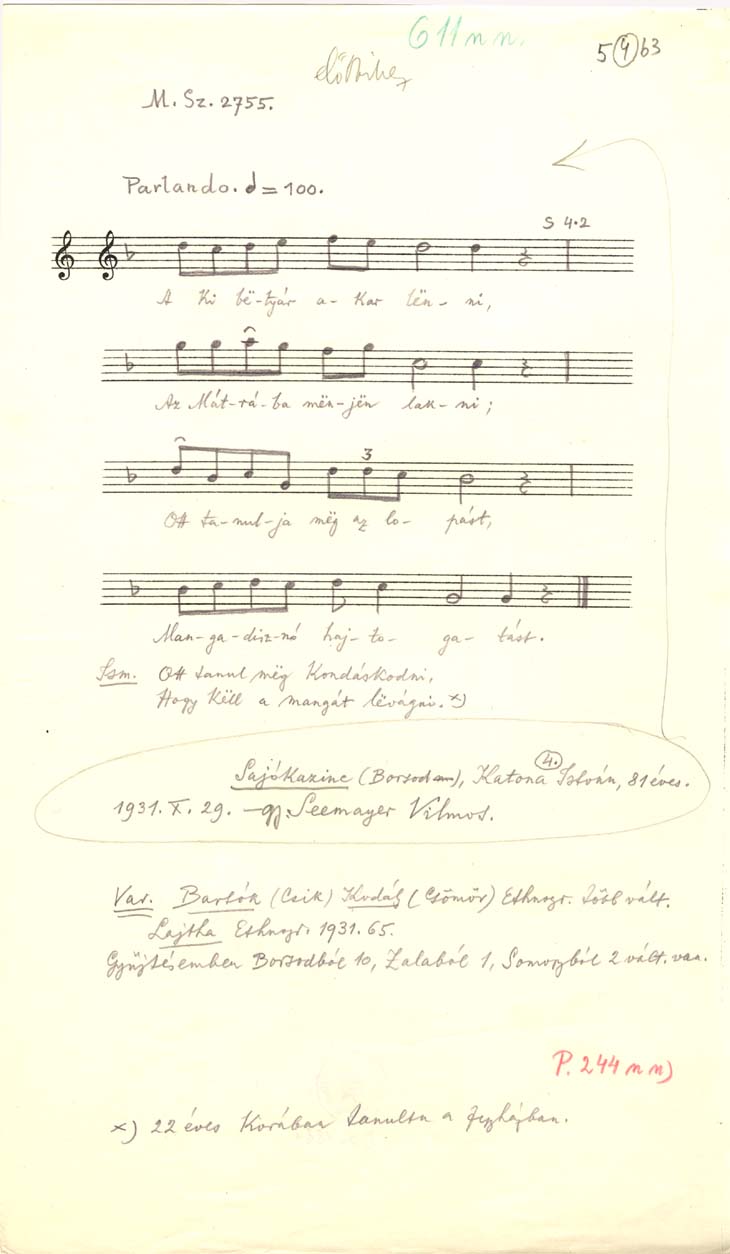 611 nn.
5 4 63
előbbihez
M. Sz. 2755.
Parlando. = 100.
S 4.2
A ki bë-tyár a- kar lën- ni,
Az Mát-rá-ba mën-jën lak-ni;
3
Ott ta-nul-ja mëg az lo- pást,
Man-ga-disz-nó haj-to- ga- tást.
Ism. Ott tanul mëg kondáskodni,
Hogy këll a mangát lëvágni. x)
4.
Sajókazinc (Borsod), Katona István, 81 éves.
1931. X. 29. gy. Seemayer Vilmos.
Var. Bartók (Csik) Kodály (Csömör) Ethnogr. több vált.
Lajtha Ethnogr. 1931. 65.
Gyűjtésemben Borsodból 10, Zalából 1, Somogyból 2 vált. van.
P. 244 nn)
x) 22 éves korában tanulta a fegyházban.